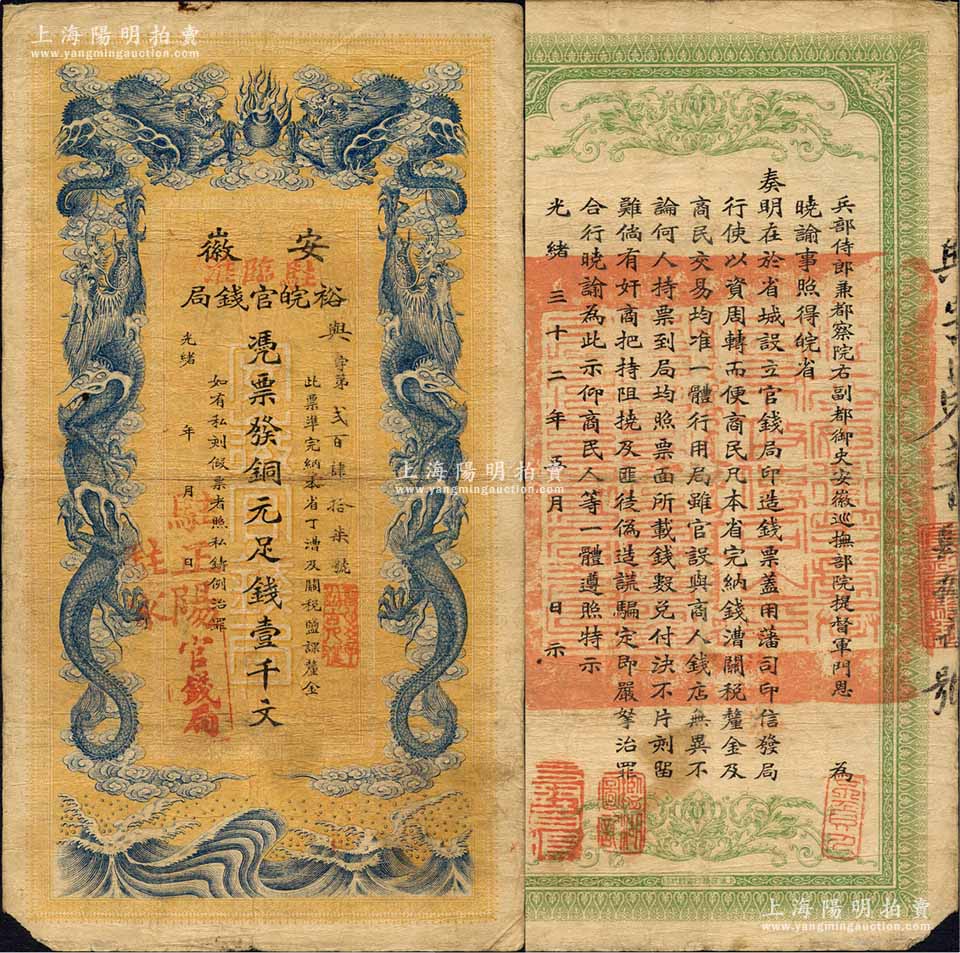 上海陽明拍賣
www.yangmingauction.com
安徽
裕皖官錢局
駐臨淮
輿字第貳百肆拾柒號
此票準完納本省丁漕及關稅鹽課釐金
憑票發銅元足錢壹千文
如有私刻假票者照私鑄例治罪
光緒 年 月 日
駐正陽官錢局
上海陽明拍賣
www.yangmingauction.com
兵部侍郎兼都察院右副都御史安徽巡撫部院提督軍門恩 為
曉諭事照得皖省
奏明在於省城設立官錢局印造錢票蓋用藩司印信發局
行使以資周轉而便商民凡本省完納錢漕關稅釐金及
商民交易均准一體行用局雖官設與商人錢店無異不
論何人持票到局均照票面所載錢數兌付決不片刻留
難倘有奸商把持阻撓及匪徒偽造謊騙定即嚴拏治罪
合行曉諭為此示仰商民人等一體遵照特示
光緒三十二年五月 日示
號
上海陽明拍賣
www.yangmingauction.com
上海陽明拍賣
www.yangmingauction.com